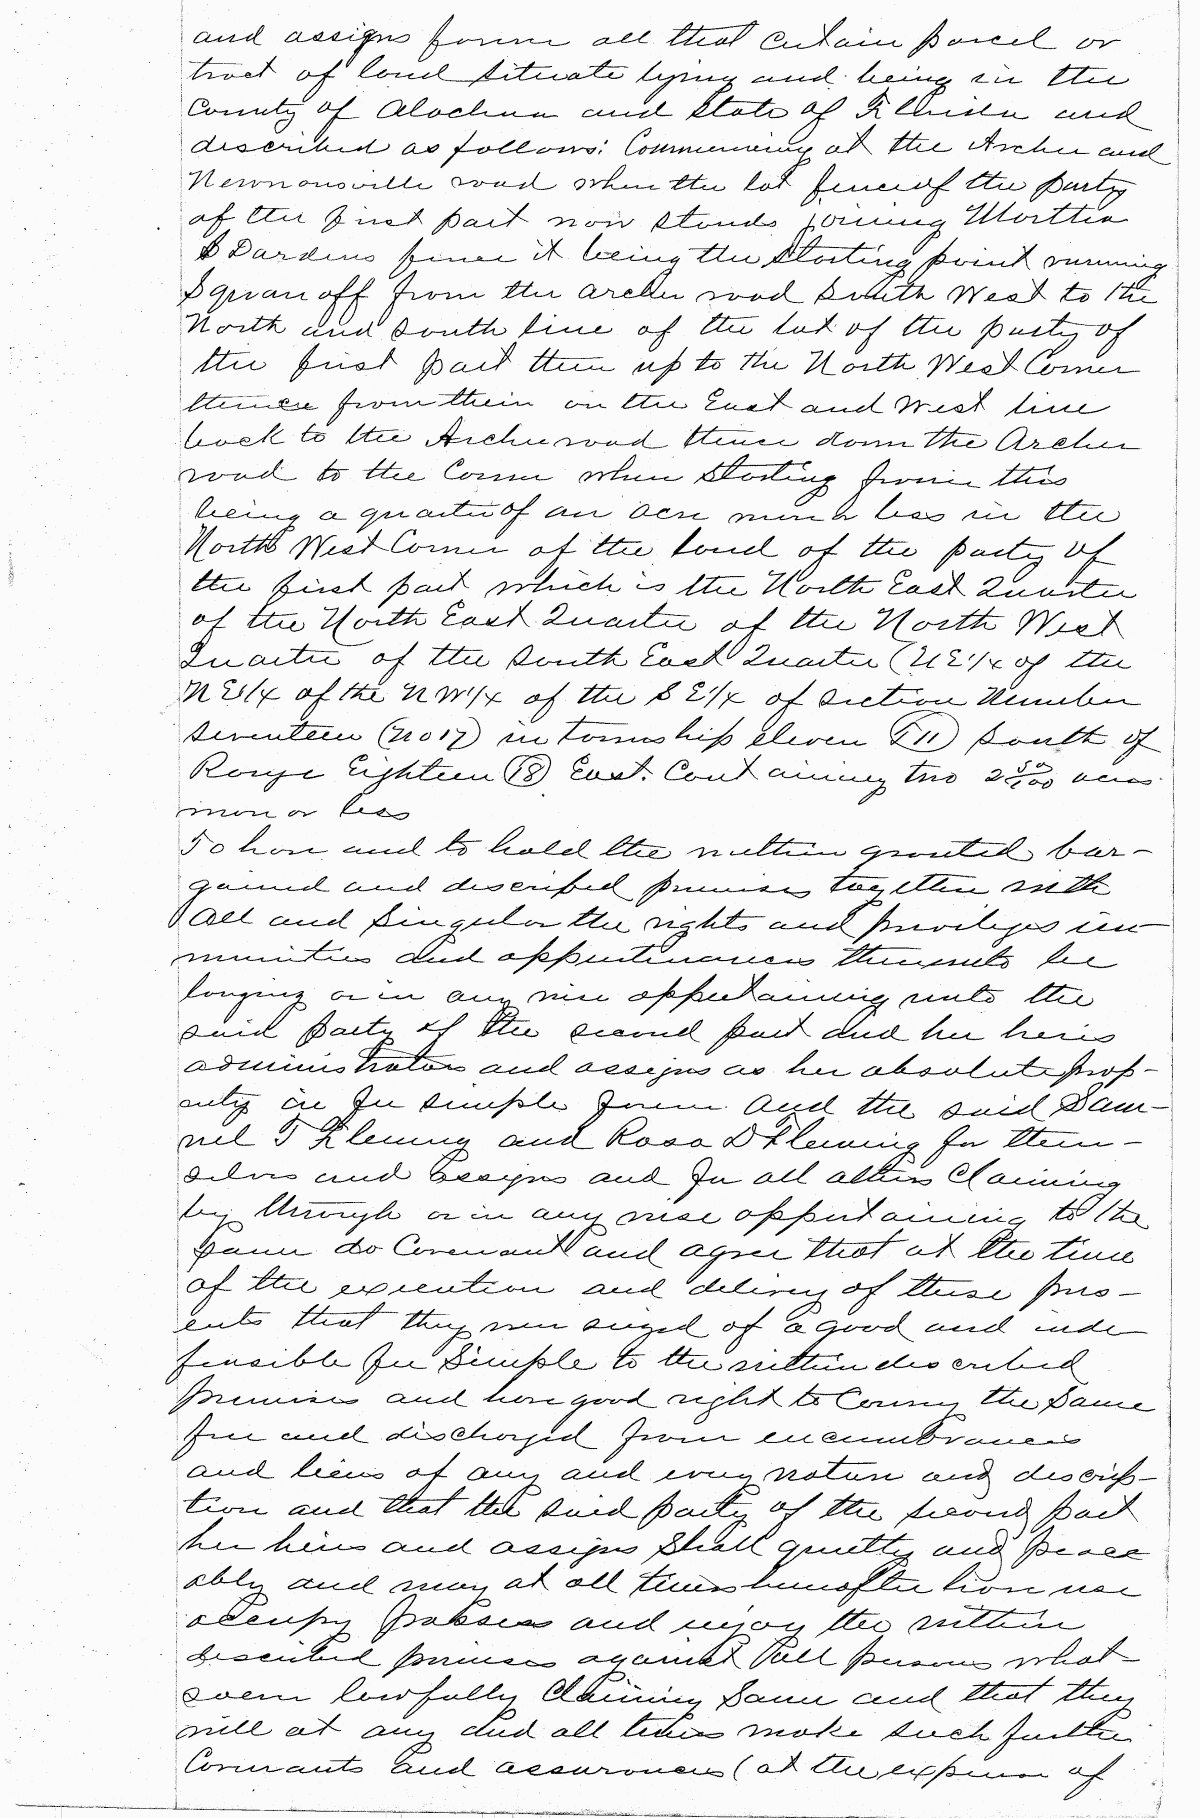 and assigns forever all that certain parcel or
tract of land situate lying and being in the
County of Alachua and State of Florida and
described as follows: Commencing at the Archer and
Newnansville road where the lot fence of the party
of the first part now stands joining Martha
S Dardens fence it being the Starting point running
Square off from the archer road South West to the
North and South line of the lot of the party of
the first part then up to the North West Corner
thence from their on the East and West line
back to the Archer road thence down the Archer
road to the Corner where Starting from this
being a quarter of an acre more or less in the
North West Corner of the land of the party of
the first part which is the North East Quarter
of the North East Quarter of the North West
Quarter of the South East Quarter (N E 1/4 of the
N E 1/4 of the N W 1/4 of the S E 1/4 of Section Number
Seventeen (No 17) in Township eleven (T 11) South of
Range Eighteen (18) East. Containing two 2 50/100 acres
more or less
To have and to hold the within granted bar-
gained and described premises together with
All and Singular the rights and privileges im-
munities and appurtenances thereunto be
longing or in any wise appertaining unto the
said party of the second part and her heirs
administrators and assigns as her absolute prop-
erty in fee simple forever And the said Sam-
uel T Fleming and Rosa D Fleming for them-
selves and assigns and for all others Claiming
by through or in any wise appertaining to the
Same do Covenant and agree that at the time
of the execution and delivery of these pres-
ents that they were seized of a good and inde
feasible fee Simple to the within described
premises and have good right to Convey the Same
free and discharged from encumbrances
and liens of any and every nature and descrip-
tion and that the said party of the second part
her heirs and assigns Shall quietly and peace
ably and may at all times hereafter have use
occupy possess and enjoy the within
described premises against all persons what-
soever lawfully Claiming Same and that they
will at any and all times make such further
Covenants and assurances (at the expense of